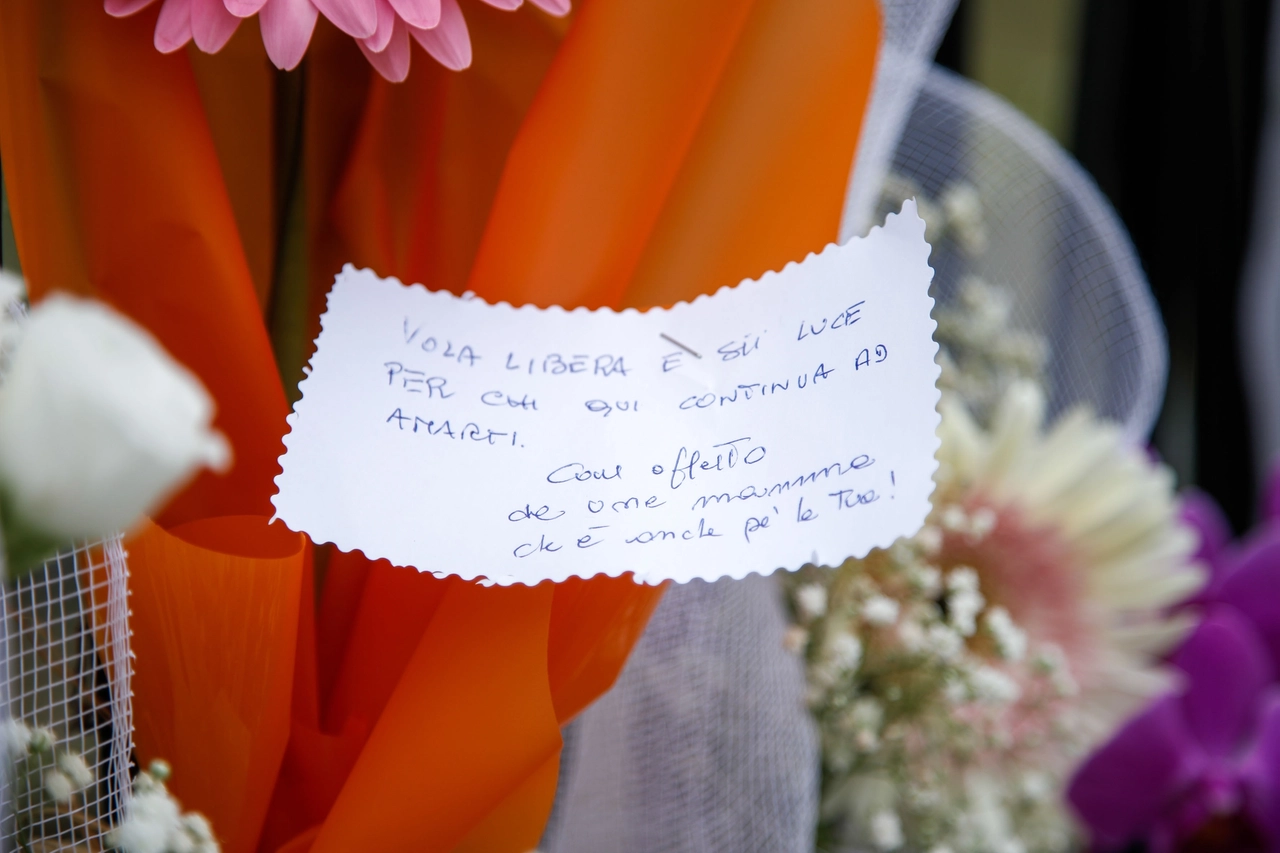 VOLA LIBERA E SII LUCE
PER CHI QUI CONTINUA AD
AMARTI.
Con affetto
da una mamma
che è anche po' la Tua!